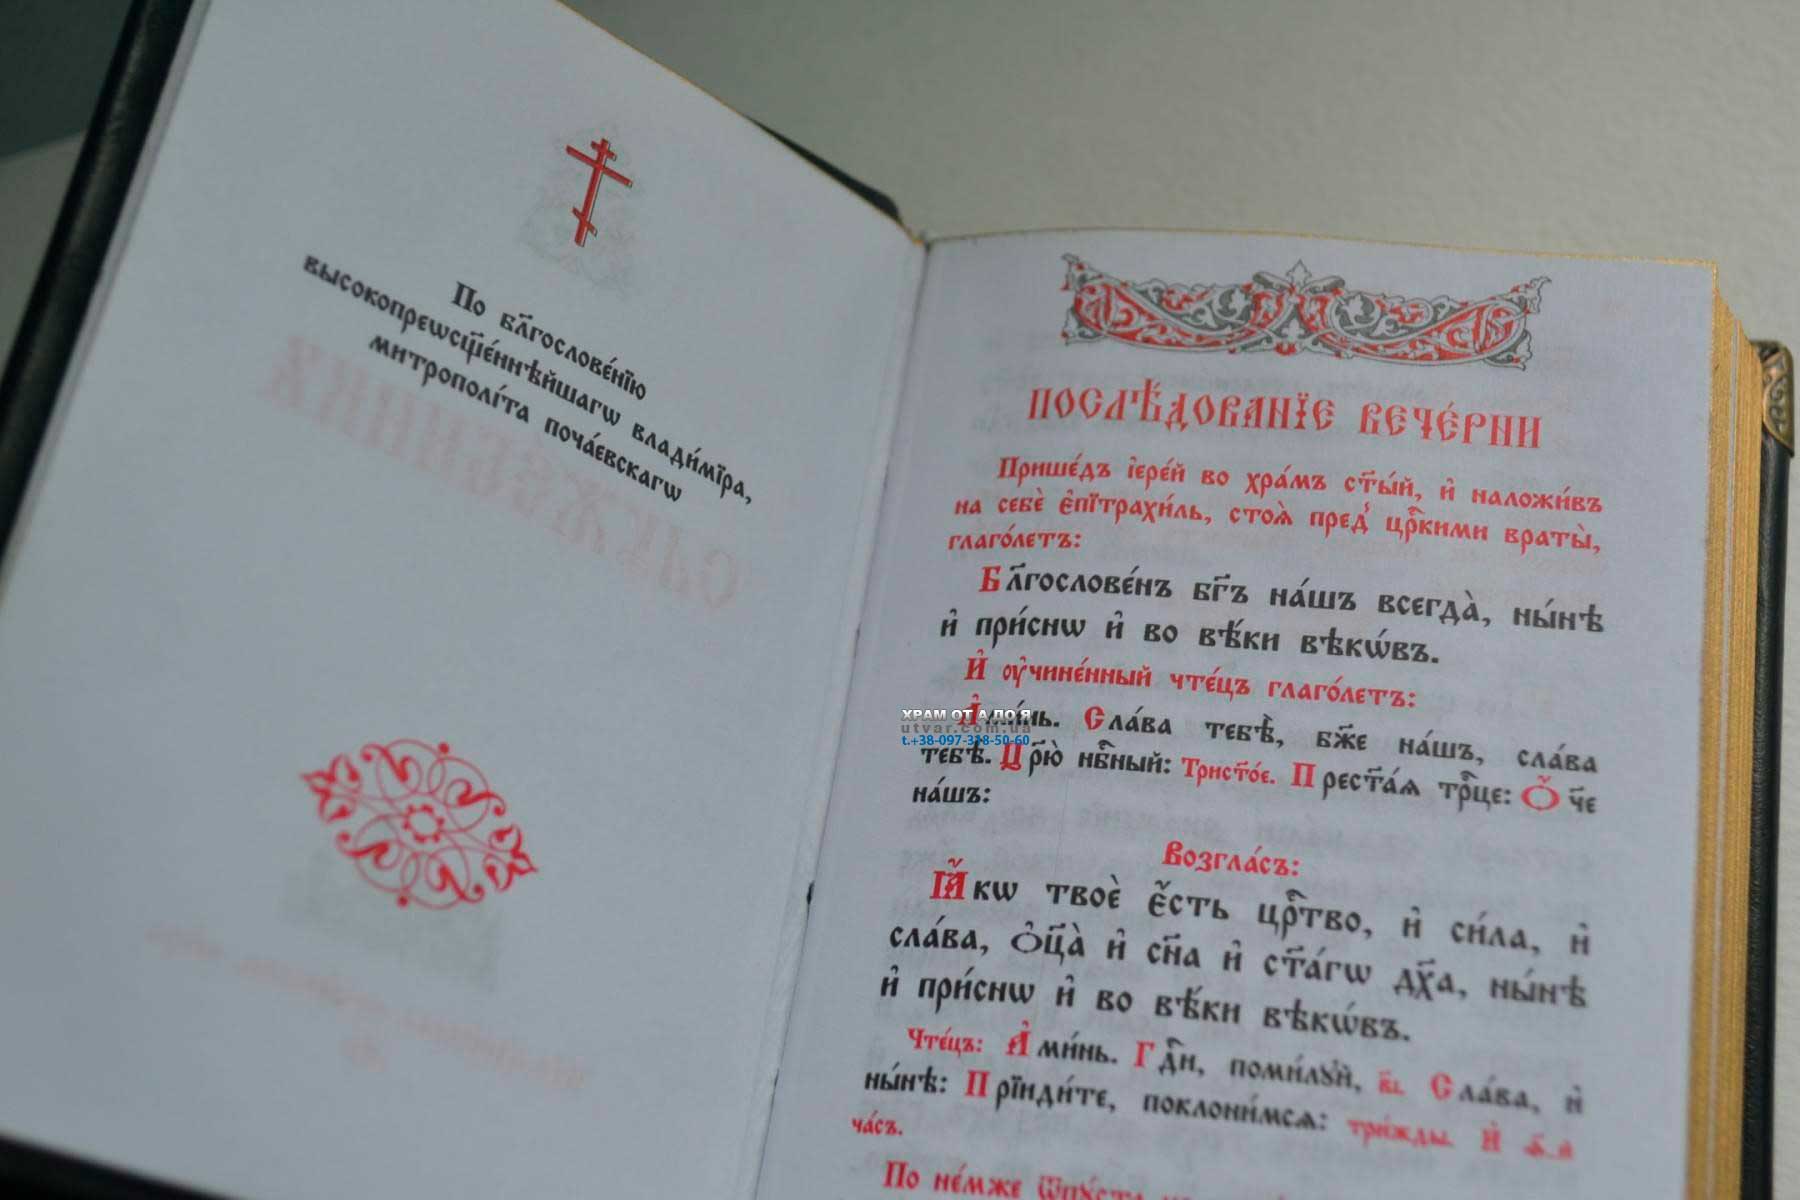 По бл҃гослове́нїю
высокопреѡсщ҃е́ннѣйшагѡ влади́мїра,
митрополі́та поча́евскагѡ
ПОСЛѢ́ДОВАНЇЕ ВЕЧЕ́РНИ
Прише́дъ і҆ере́й во хра́мъ ст҃ы́й, и҆ наложи́въ
на себѐ є҆пїтрахи́ль, стоѧ̀ пред̾ цр҃кими враты̀,
глаго́летъ:
Бл҃гослове́нъ бг҃ъ на́шъ всегда̀, ны́нѣ
и҆ при́снѡ и҆ во вѣ́ки вѣкѡ́въ.
И҆ ᲂу҆чине́нный чте́цъ глаго́летъ:
А҆ми́нь. Сла́ва тебѣ̀, бж҃е на́шъ, сла́ва
тебѣ̀. Цр҃ю̀ нб҃ный: Трист҃о́е. Прест҃а́ѧ трⷪ҇це: Ѻ҆́ч҃е
на́шъ:
Возгла́съ:
Ꙗ҆́кѡ твоѐ є҆́сть црⷭ҇тво, и҆ си́ла, и҆
сла́ва, ѻ҆ц҃а̀ и҆ сн҃а и҆ ст҃а́гѡ дх҃а, ны́нѣ
и҆ при́снѡ и҆ во вѣ́ки вѣкѡ́въ.
Чте́цъ: А҆ми́нь. Гдⷭ҇и, поми́лꙋй, в҃і. Сла́ва, и҆
ны́нѣ: Прїиди́те, поклони́мсѧ: три́жды. И҆
ча́съ.
По не́мже
ХРАМ ОТ А ДО Я
utvar.com.ua
t.+38-097-318-50-60